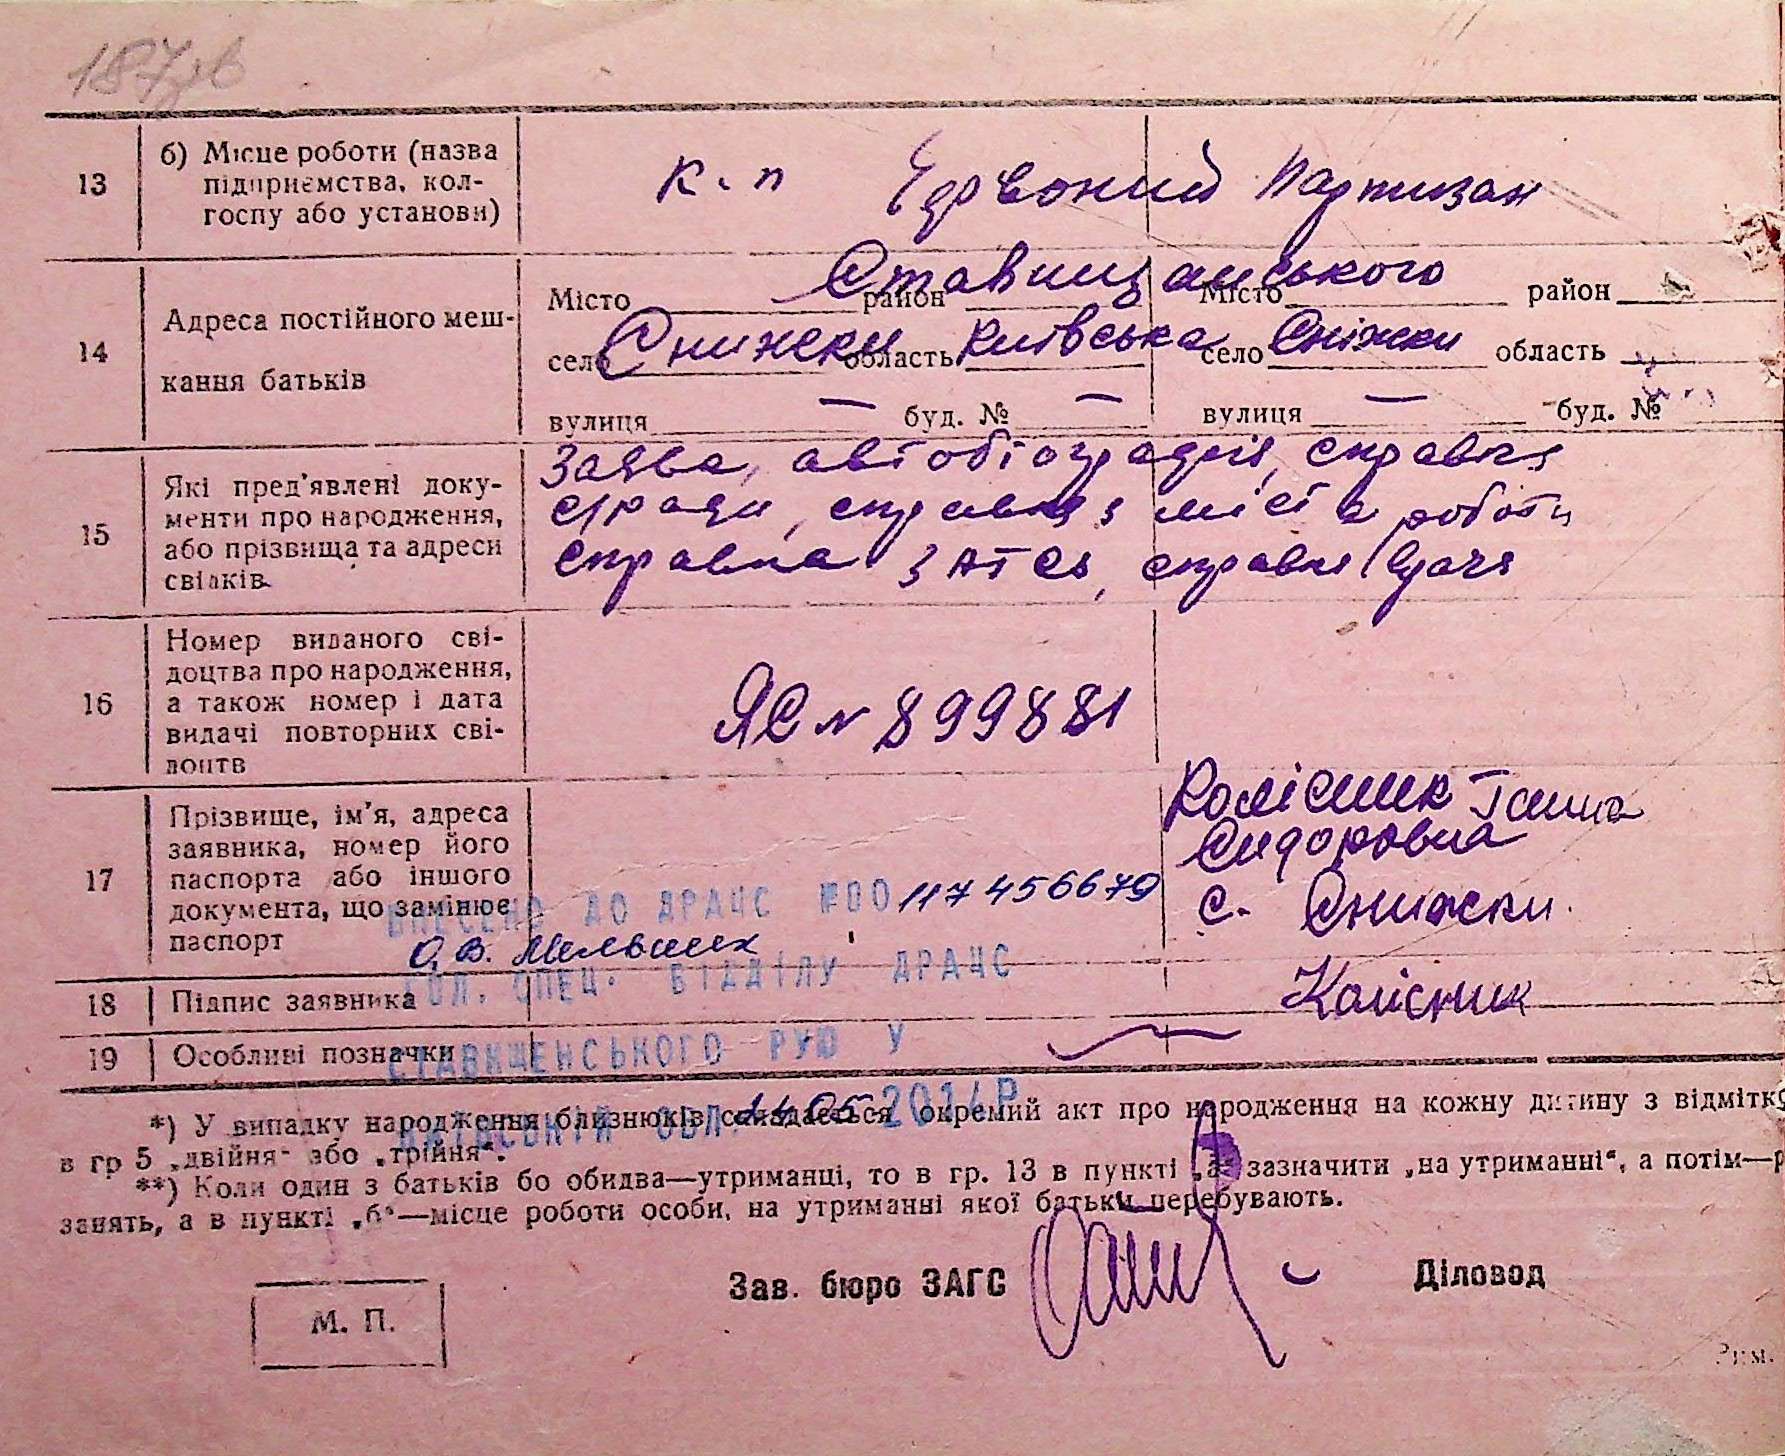 187
13 б) Місце роботи (назва підприємства, колгоспу або установи)
к. п Червоний Партизан
14 Адреса постійного мешкання батьків
Ставищанського
Місто район Місто район
село Снижски область Київська село Сніжки область
вулиця — буд. № — вулиця — буд. №
15 Які пред'явлені документи про народження, або прізвища та адреси свідків
Заява, автобіографія, справка
сільради, справка з міста роботи
справка ЗАГСа, справка врача
16 Номер виданого свідоцтва про народження, а також номер і дата видачі повторних свідоцтв
ЯС № 899881
17 Прізвище, ім'я, адреса заявника, номер його паспорта або іншого документа, що замінює паспорт
Колісник Ганна
Сидоровна
с. Снижски.
ВНЕСЕНО ДО ДРАЦС №00117456679
О.В. Мельник
ГОЛ. СПЕЦ. ВІДДІЛУ ДРАЦС
18 Підпис заявника Колісник
19 Особливі позначки
СТАВИЩЕНСЬКОГО РУЮ У
КИЇВСЬКІЙ ОБЛ. 05 2014Р
*) У випадку народження близнюків складається окремий акт про народження на кожну дитину з відмітко
в гр 5 „двійня“ або „трійня“.
**) Коли один з батьків бо обидва—утриманці, то в гр. 13 в пункті „а“ зазначити „на утриманні“, а потім—р
занять, а в пункті „б“—місце роботи особи, на утриманні якої батьки перебувають.
Зав. бюро ЗАГС Діловод
М. П.